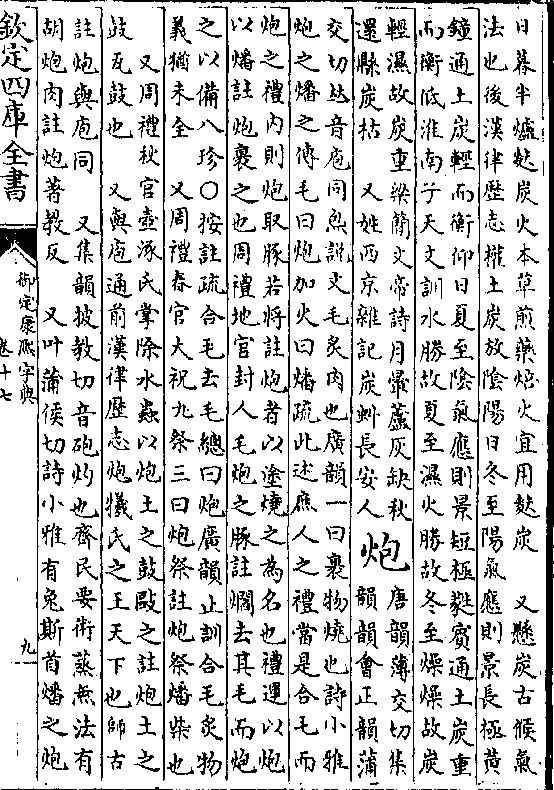 日暮半爐麩炭火本草煎藥焙火宜用麩炭　又懸炭古候氣
法也後漢律歷志權土炭放陰陽日冬至陽氣應則景長極黃
鐘通土炭輕而衡仰日夏至陰氣應則景短極蕤賓通土炭重
而衡低淮南子天文訓水勝故夏至濕火勝故冬至燥燥故炭
輕濕故炭重梁簡文帝詩月暈蘆灰缺秋
還縣炭枯　又姓西京雜記炭虯長安人
炮
唐韻薄交切集
韻韻會正韻蒲
交切𠀤音庖同炰說文毛炙肉也廣韻一曰裹物燒也詩小雅
炮之燔之傳毛曰炮加火曰燔疏此述庶人之禮當是合毛而
炮之禮內則炮取豚若將註炮者以塗燒之為名也禮運以炮
以燔註炮裹之也周禮地官封人毛炮之豚註爓去其毛而炮
之以備八珍○按註疏合毛去毛總曰炮廣韻止訓合毛炙物
義猶未全　又周禮春官大祝九祭三曰炮祭註炮祭燔柴也
又周禮秋官壺涿氏掌除水蟲以炮土之鼓敺之註炮土之
鼓瓦鼓也　又與庖通前漢律歷志炮犧氏之王天下也師古
註炮與庖同　又集韻披教切音砲灼也齊民要術蒸缹法有
胡炮肉註炮普教反　又叶蒲侯切詩小雅有兔斯首燔之炮
欽定四庫全書
御定康熙字典
卷十七
九